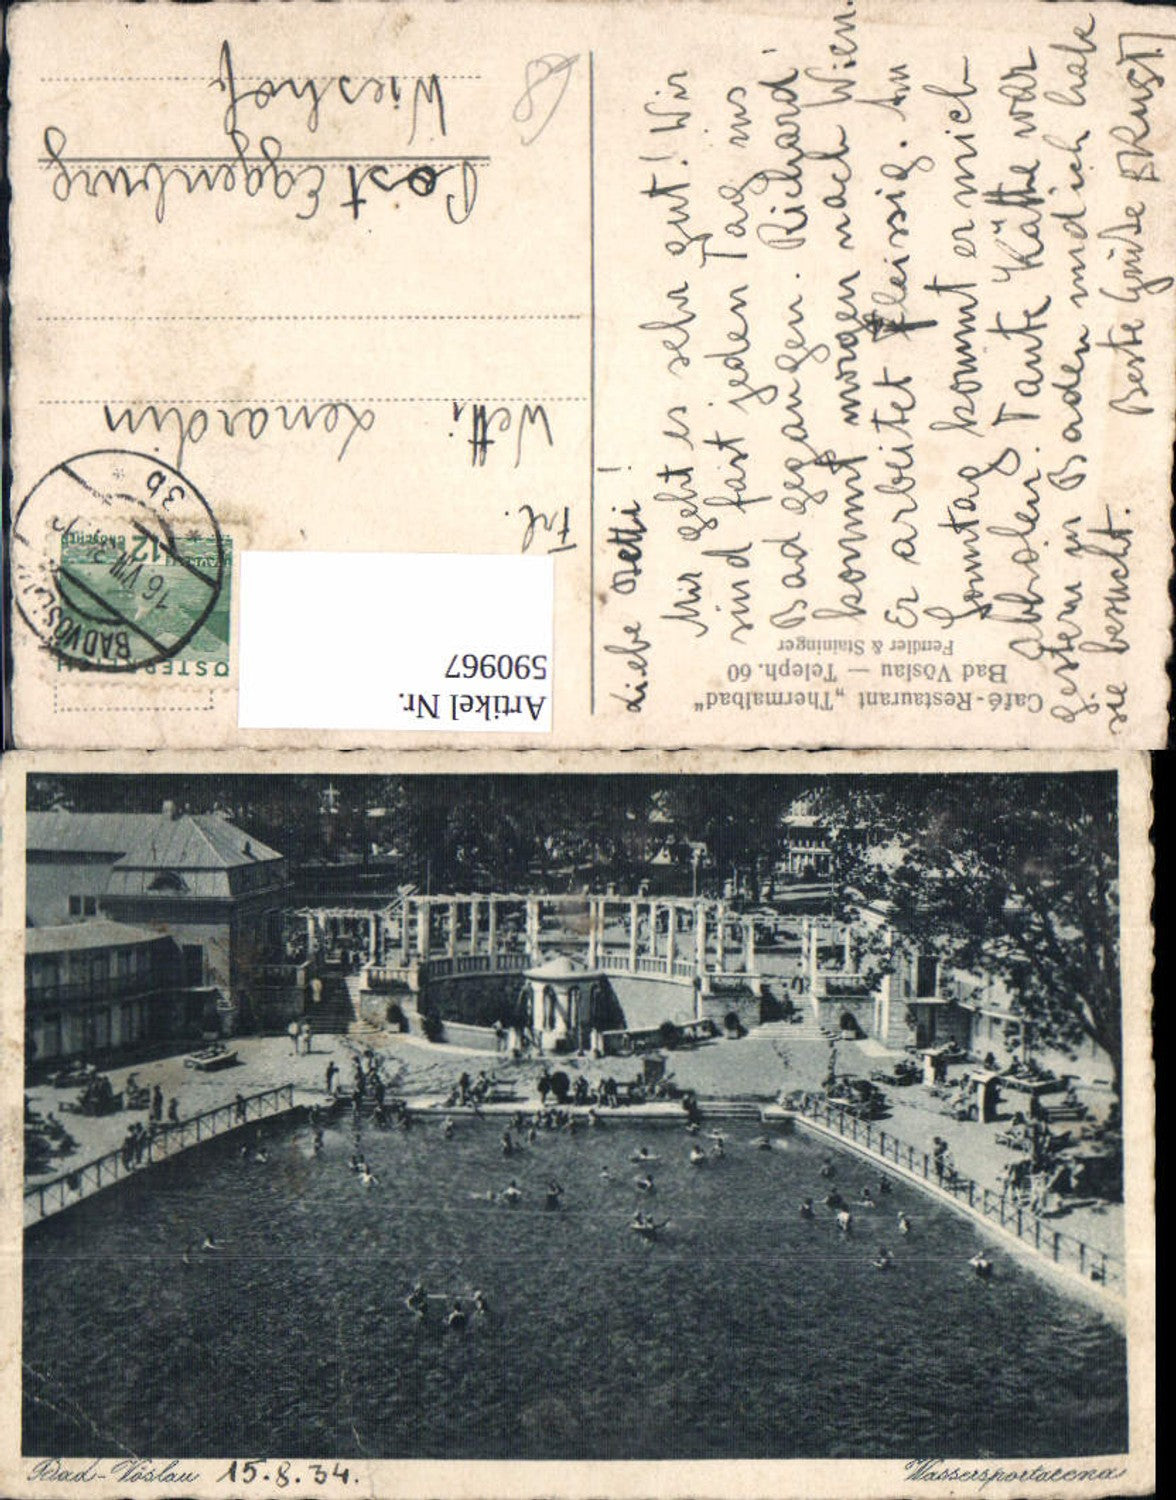 Café-Restaurant „Thermalbad"
Bad Vöslau — Teleph. 60
Fendler & Staininger
Liebe Betti!
Mir geht es sehr gut! Wir
sind fast jeden Tag ins
Bad gegangen. Richard
kommt morgen nach Wien.
Er arbeitet fleissig. Am
Sonntag kommt er mich
abholen. Tante Käthe war
gestern in Baden und ich habe
sie besucht.
Beste Grüße
Artikel Nr.
590967
ÖSTERREICH
12
GROSCHEN
BAD VÖSLAU
16 VIII 34
* 3b *
Frl.
Lenardin
Post Eggenburg
Wieshof
68
Bad-Vöslau 15.8.34.
Wassersportarena